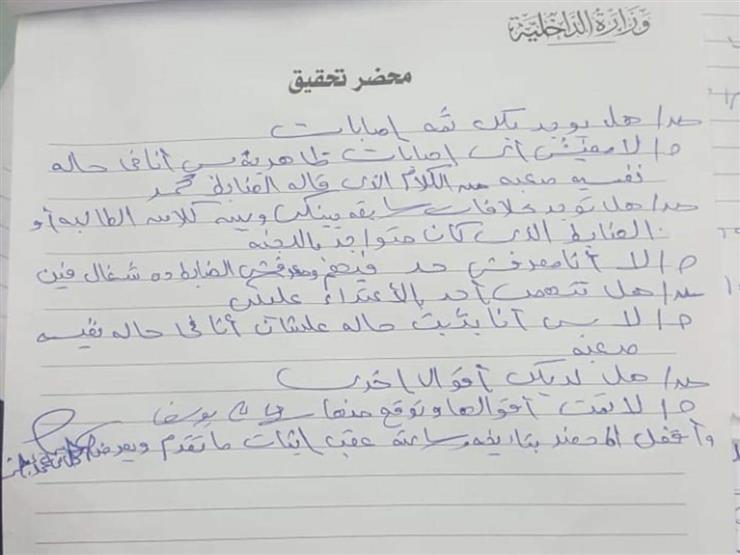 وزارة الداخلية
محضر تحقيق
س/ هل يوجد بكى ثمه إصابات
ج/ لا مفيش أى إصابات ظاهرية بس أنا فى حاله
نفسيه صعبه من الكلام الذى قاله الضابط محمد
س/ هل توجد خلافات سابقه بينكى وبين كلا من الطالبه أو
الضابط الذى كان متواجد باللجنه
ج/ لا أنا معرفش حد فيهم ومعرفش الضابط ده شغال فين
س/ هل تتهمى أحد بالأعتداء عليكى
ج/ لا بس أنا بثبت حاله علشان أنا فى حاله نفسيه
صعبه
س/ هل لديكى أقوال اخرى
ج/ لا تمت أقوالها وتوقع منها
وأقفل المحضر بتاريخه وساعته عقب إثبات ما تقدم ويعرض